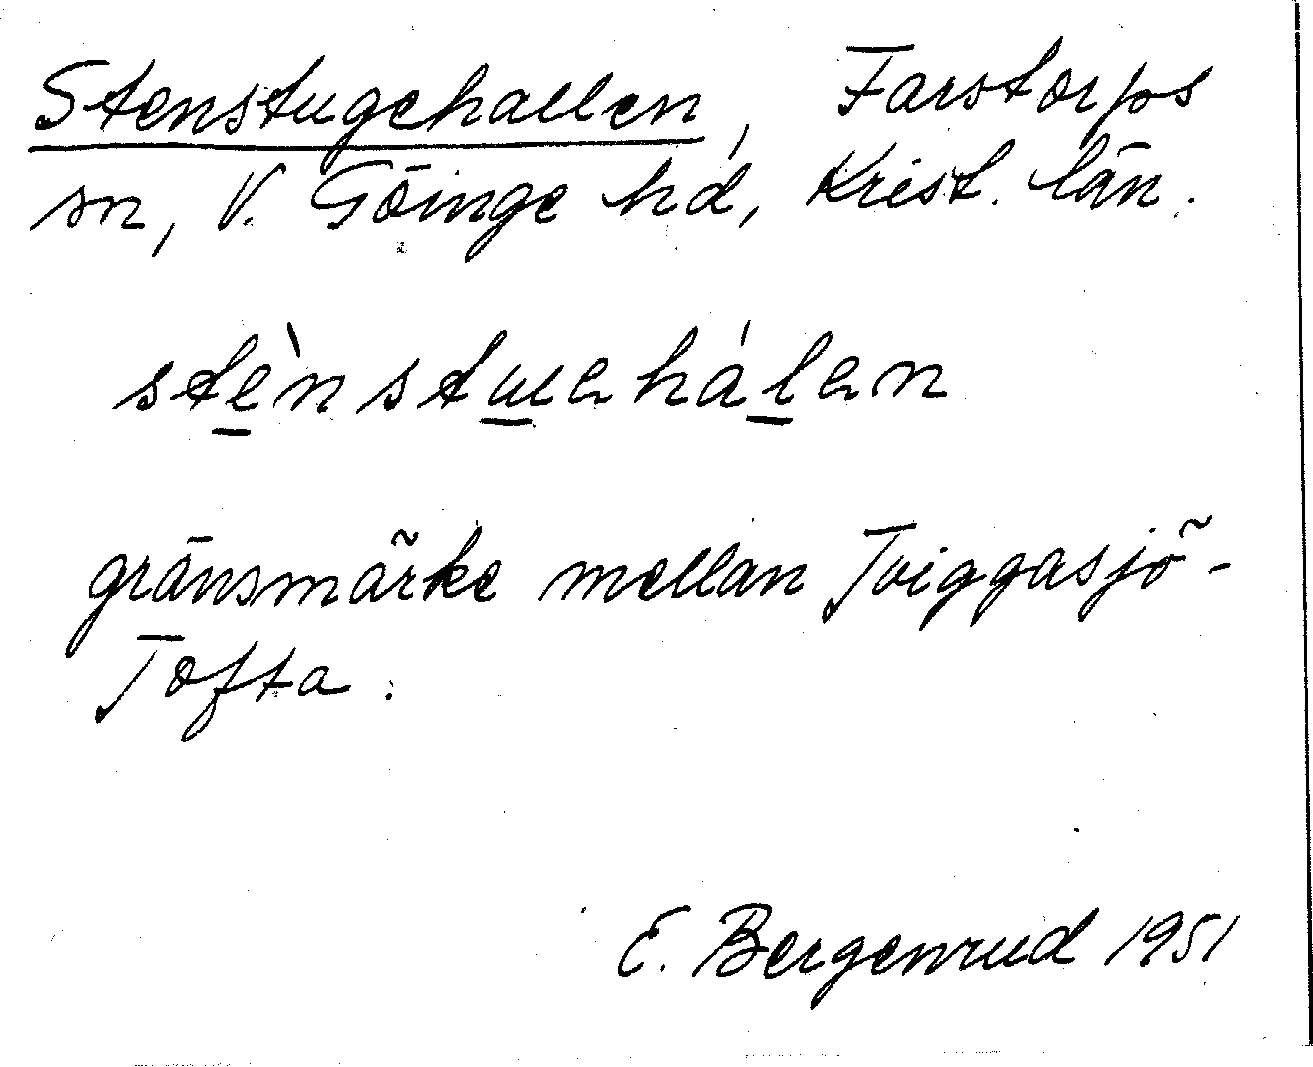 Stenstugehallen, Farstorps
sn, V. Göinge hd, Krist. län.
stènstuɐhálɐn
gränsmärke mellan Tviggasjö-
Tofta.
E. Bergenrud 1951